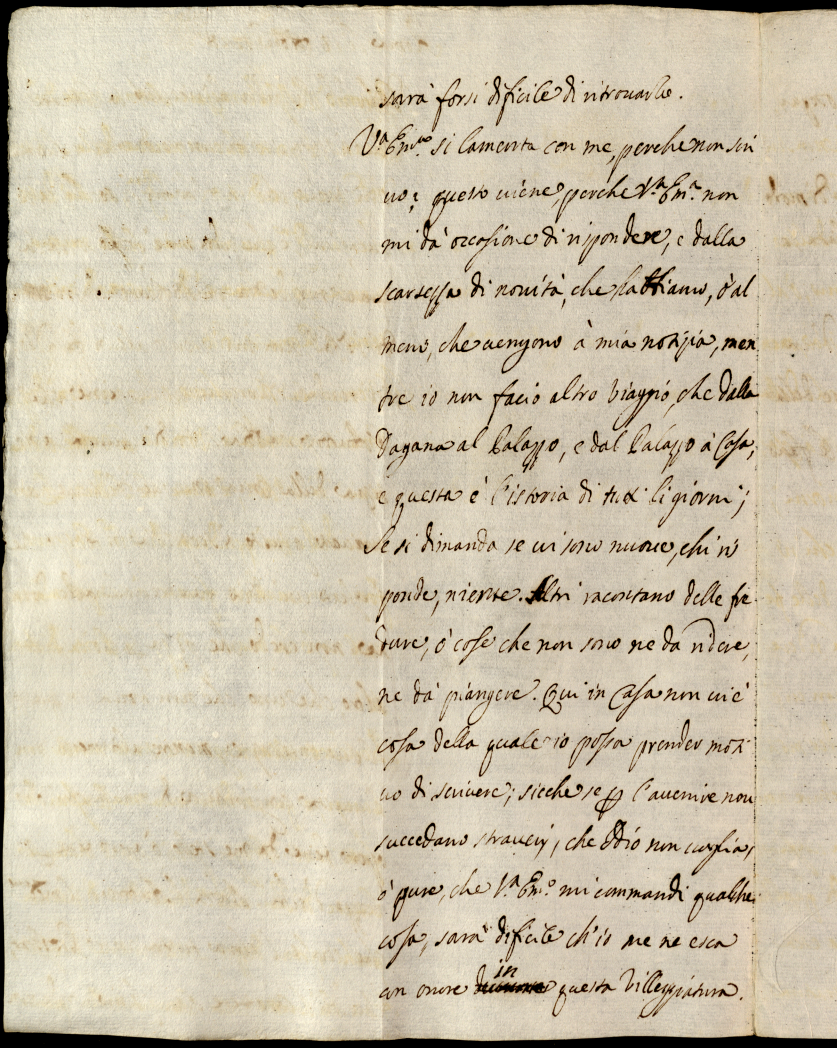 sarà forsi dificile di ritrovarlo.
V.ª Em.ª si lamenta con me, perche non scri
uo; questo uiene, perche V.ª Em.ª non
mi dà occasione di rispondere, e dalla
scarsezza di nouità, che habbiamo, ò al
meno, che uengono à mia notizia, men
tre io non facio altro viaggio, che dalla
Dogana al Palazzo, e dal Palazzo à Casa,
e questa è l'istoria di tutti li giorni;
Se si dimanda se ui sono nuoue, chi ri
ponde, niente. Altri racontano delle fre
dure, ò cose che non sono ne da ridere,
ne dà piangere. Qui in Casa non ui è
cosa della quale io possa prender moti
uo di scriuere; sicche se p l'auenire non
succedano strauizij, che Iddio non uoglia,
ò pure, che V.ª Em.ª mi commandi qualche
cosa, sarà dificile ch'io me ne esca
con onore in questa Villeggiatura.